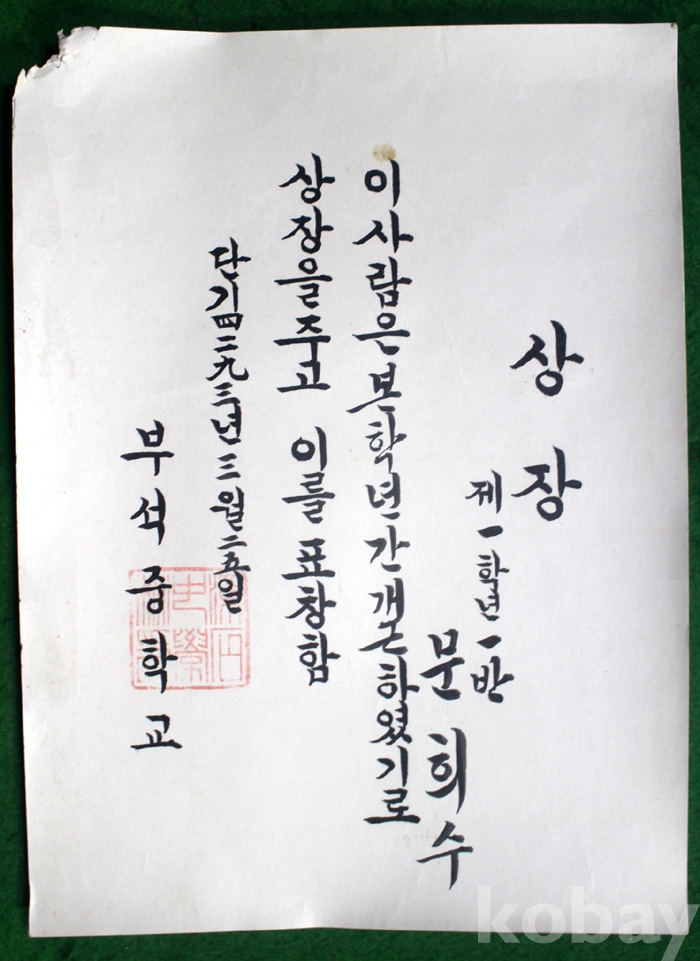 상장
제一학년一반
문희수
이사람은본학년간개근하였기로
상장을주고 이를표창함
단기四二九三년三월二五일
부석중학교
kobay